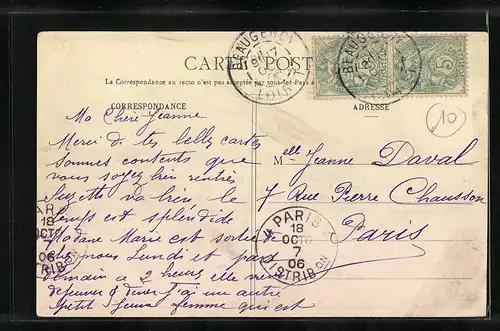 CARTE POSTALE
La Correspondance au recto n'est pas acceptée par tous les Pays
CORRESPONDANCE
ADRESSE
BEAUGENCY
LOIRET
BEAUGENCY
5
10
Ma Chère Jeanne
Merci de tes belles cartes
sommes contents que
vous soyez bien rentrés
Suzette va bien, le
temps est splendide
Madame Marie est sortie de
chez nous Lundi et pars
demain à 2 heures elle vient
déjeuner & dîner j'ai un autre
petit jeune femme qui est
Melle Jeanne Daval
7 Rue Pierre Chausson
Paris
PARIS
18
OCTO
7
06
DISTRIBON
18
OCTO
7
06
TRIB